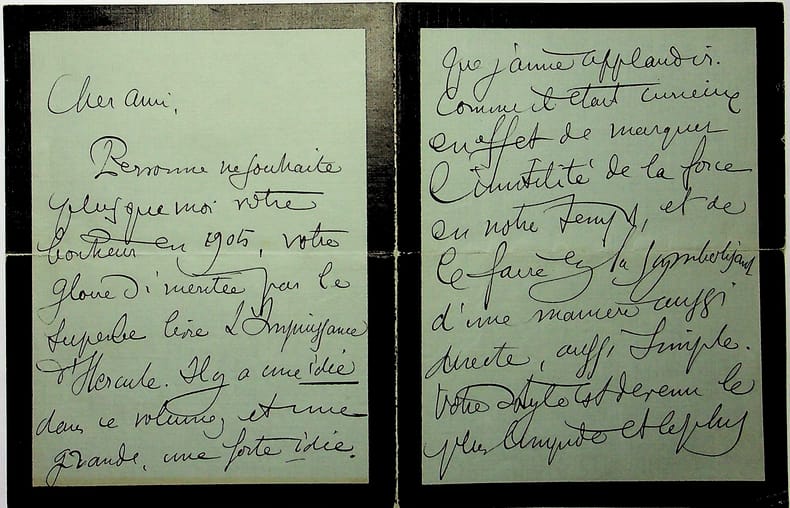 Cher ami,
Personne ne souhaite
plus que moi votre
bonheur en 1905, votre
gloire si méritée par le
superbe livre L'Impuissance
d'Hercule. Il y a une idée
dans ce volume, et une
grande, une forte idée.
que j'aime applaudir.
Comme il était curieux
en effet de marquer
l'inutilité de la force
en notre temps, et de
le faire en la symbolisant
d'une manière aussi
directe, aussi simple.
Votre style est devenu le
plus limpide et le plus